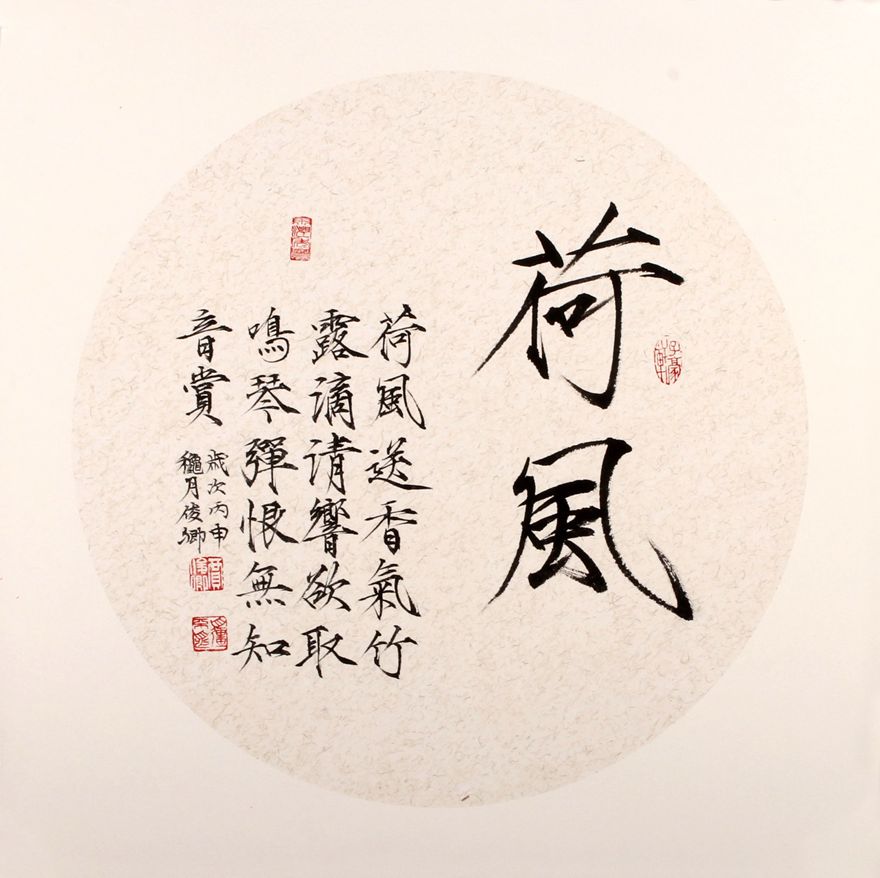 荷風
荷風送香氣竹
露滴清響欲取
鳴琴彈恨無知
音賞
歲次丙申
龝月俊卿